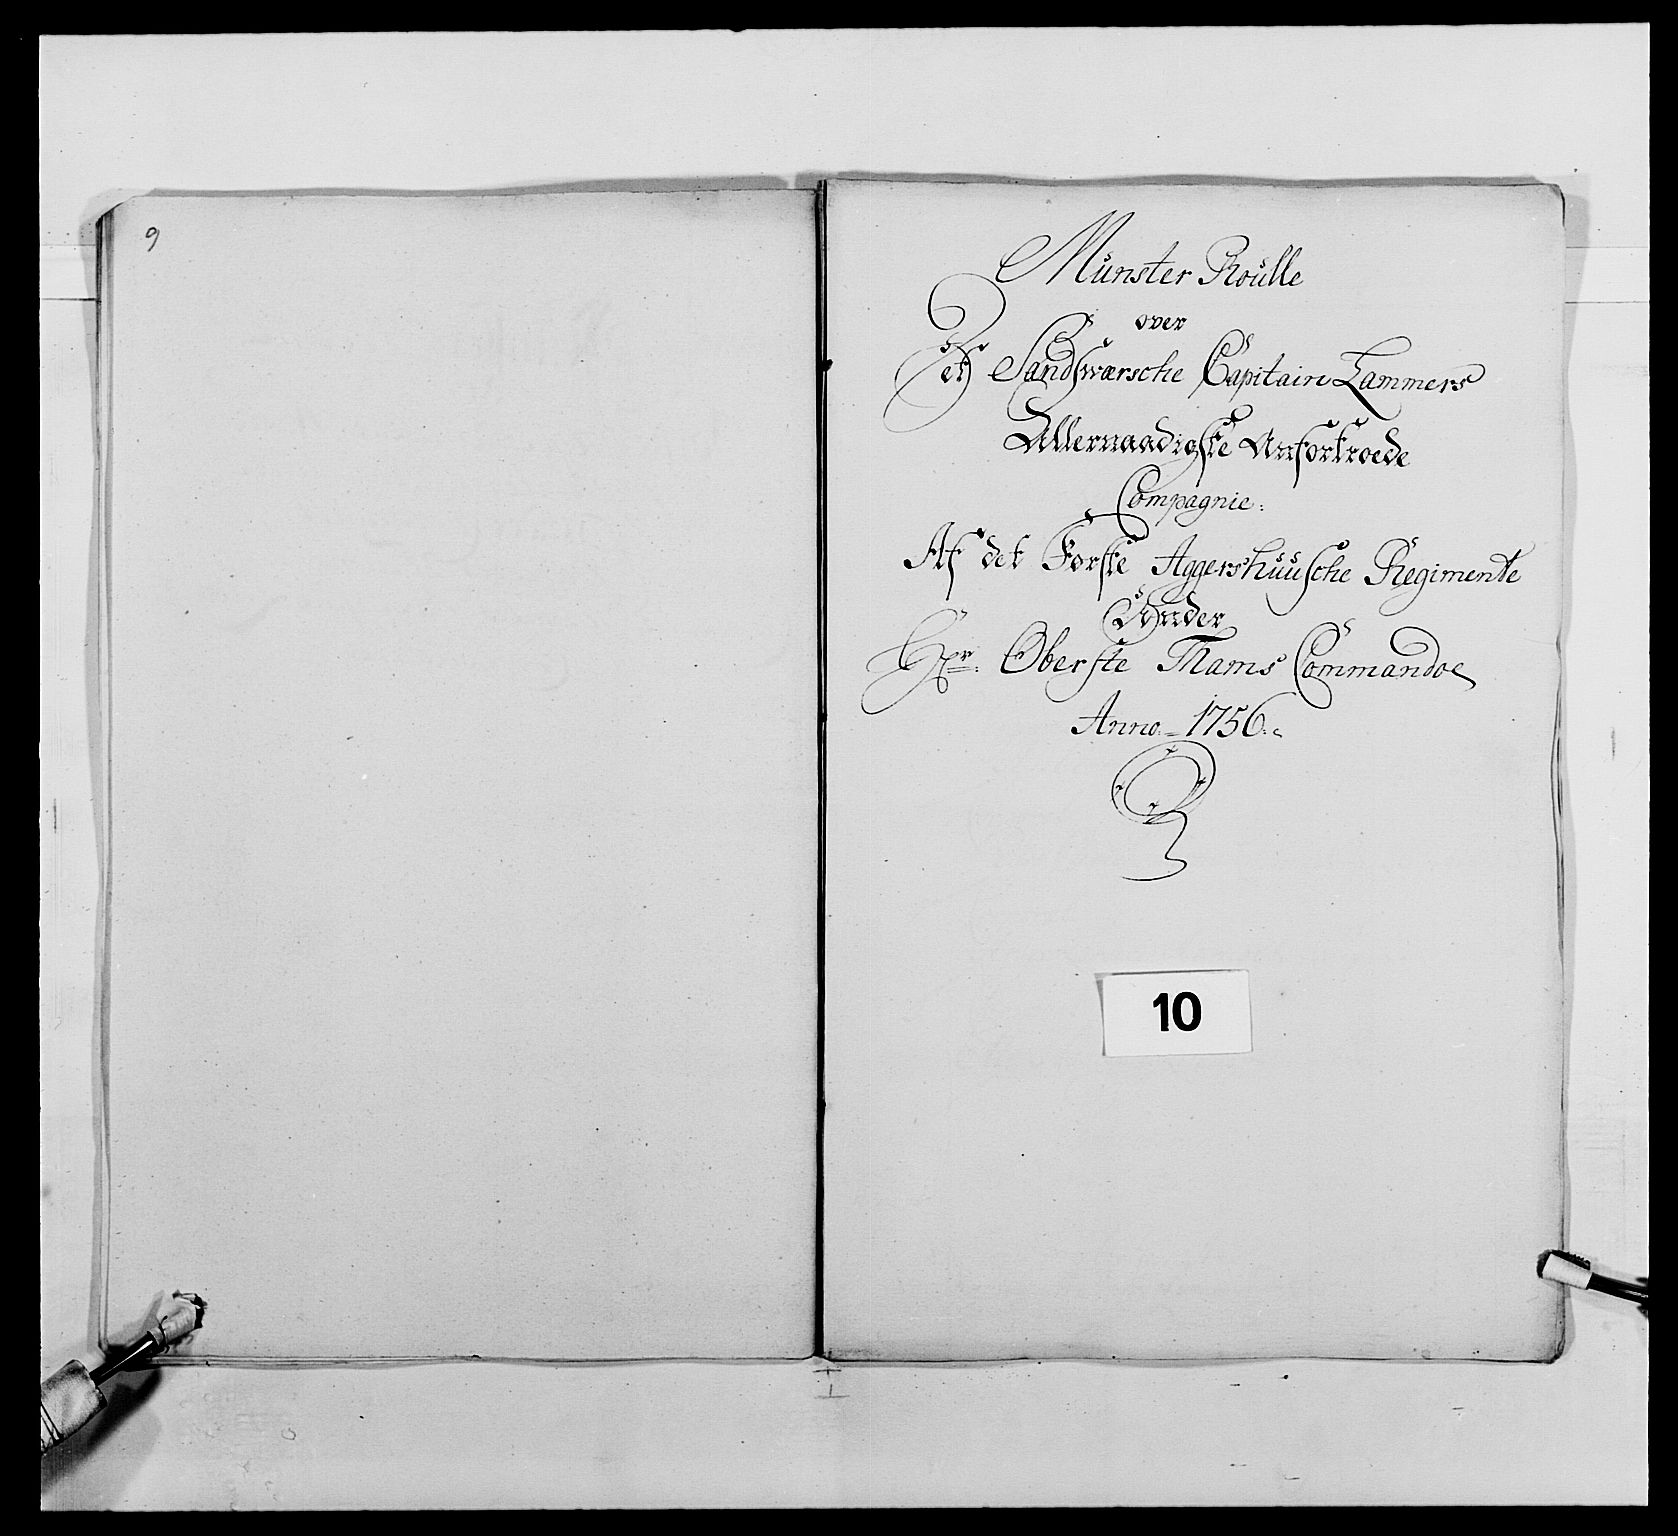 9
Münster Roulle
over
Det Sandswærsche Capitain Lammers
Allernaadigste Anfortroede
Compagnie:
Af det Første Aggershuusche Regimente
Under
Hr: Oberste Thams Commandoe
Anno 1756.
10